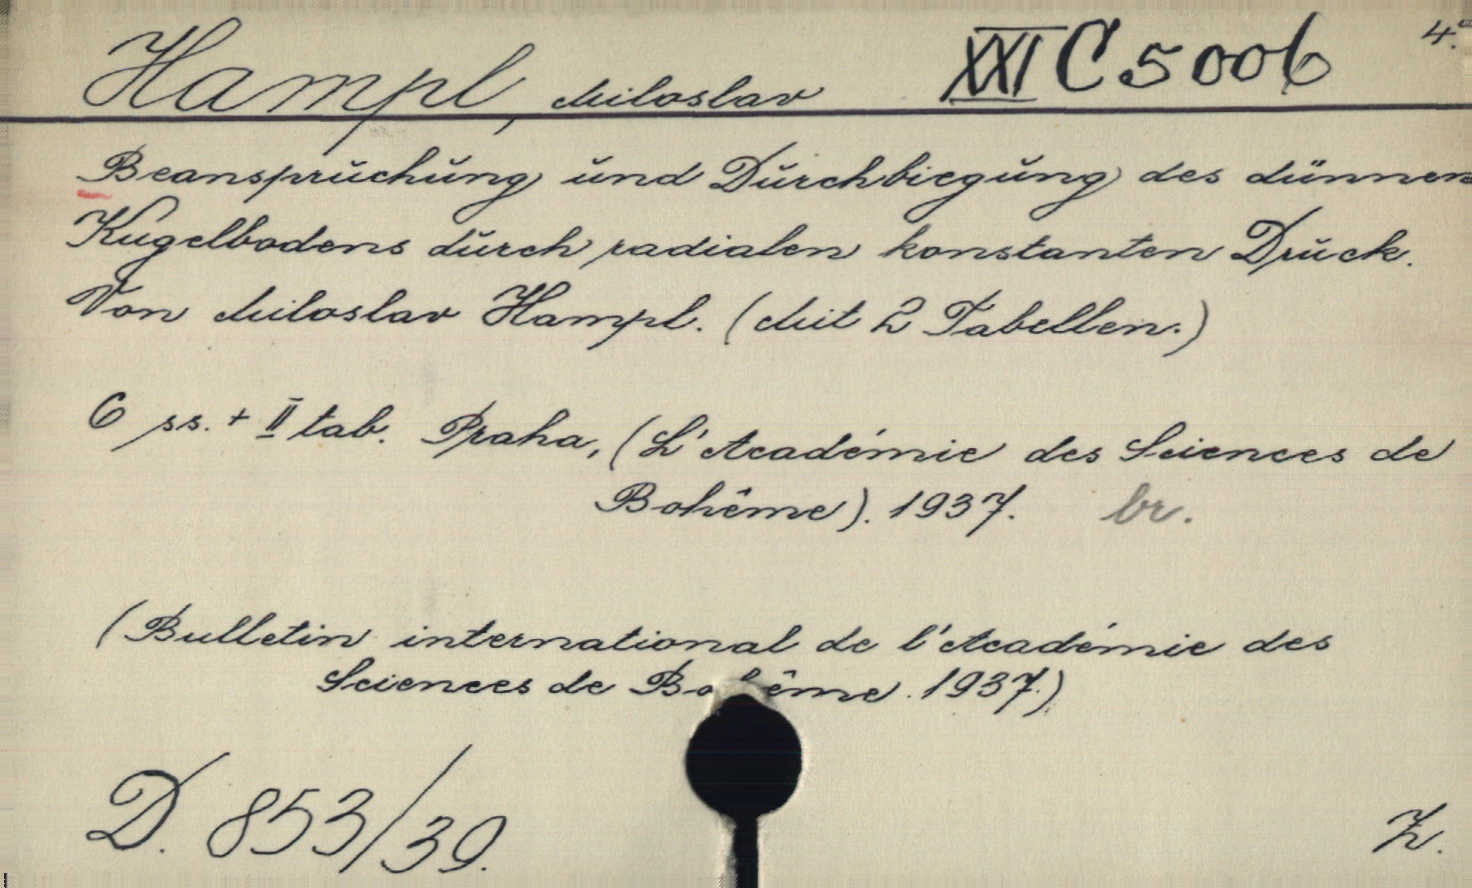 Hampl, Miloslav XXI C 5006 4.°
Beanspruchung und Durchbiegung des dünnen
Kugelbodens durch radialen konstanten Druck.
Von Miloslav Hampl. (Mit 2 Tabellen.)
6 ss. + II tab. Praha, (L'Académie des Sciences de
Bohême). 1937. br.
(Bulletin international de l'Académie des
Sciences de Bohême. 1937.)
D. 853/39. Z.